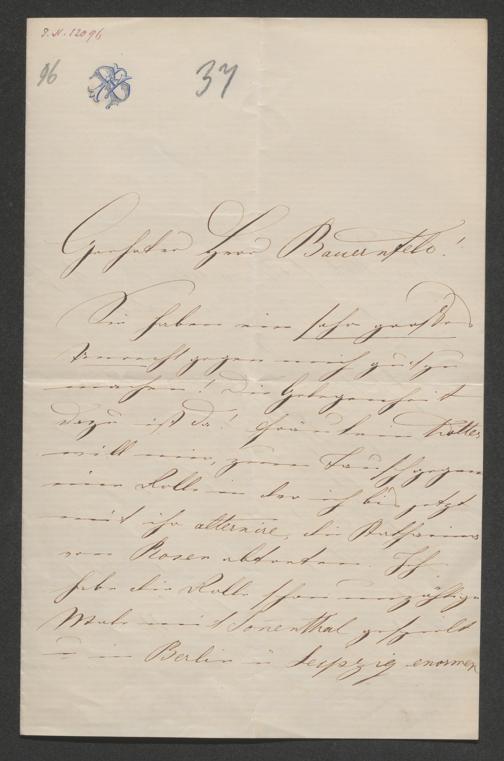 I. N. 12096
96
37
Geehrter Herr Bauernfeld!
Sie haben ein sehr großes
Unrecht gegen mich gutzu
machen! Die Gelegenheit
dazu ist da! Fräulein
will mir, zum Tausch gegen
eine Rolle in der ich bis jetzt
mit ihr alternire, die Katharina
von Rosen abtreten. Ich
habe die Rolle schon unzählige
Male mit Sonenthal gespielt
u in Berlin u Leipzig enormen